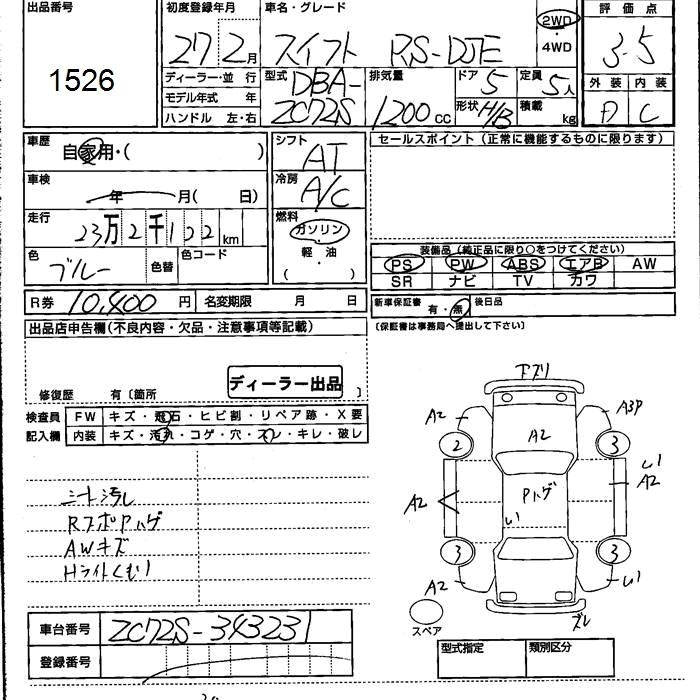 出品番号
1526
初度登録年月
27 2月
車名・グレード
スイフト RS-DJE
2WD
・
4WD
評価点
3.5
外装 内装
A C
ディーラー・並行
モデル年式 年
ハンドル 左・右
型式
DBA-
ZC72S
排気量
1200cc
ドア 5
形状 H/B
定員 5人
積載 kg
車歴
自家用・( )
車検
年 月( 日)
走行
23万2千122km
色
ブルー
色替
色コード
シフト
AT
冷房
A/C
燃料
ガソリン
・
軽・油
( )
セールスポイント(正常に機能するものに限ります)
装備品(純正品に限り○をつけてください)
PS PW ABS エアB AW
SR ナビ TV カワ
R券 10,400円 名変期限 月 日
新車保証書 有・無 後日品
(保証書は事務局へ提出して下さい)
出品店申告欄(不良内容・欠品・注意事項等記載)
ディーラー出品
修復歴 有〔箇所 〕
検査員
記入欄
FW キズ・飛石・ヒビ割・リペア跡・X要
内装 キズ・汚れ・コゲ・穴・スレ・キレ・破レ
シート汚れ
RスポPハゲ
AWキズ
Hライトくもり
下ズリ
A2 A3P
2 A2 3
Pハゲ
A2 A2
3 3
A2
ズレ
スペア
車台番号 ZC72S-343231
登録番号
型式指定 類別区分